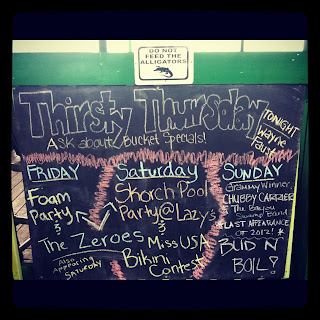 DO NOT FEED THE
ALLIGATORS
Thirsty Thursday
ASK about Bucket Specials!
TONIGHT
Wayne
FRIDAY
Foam
Party
&
The Zeroes
Also
Appearing
SATURDAY
Saturday
Skorch Pool
Party @ Lazy's
&
Miss USA
Bikini
Contest
SUNDAY
Grammy Winner
CHUBBY CARRIER
& The Bayou
Swamp Band
*LAST APPEARANCE
OF 2012! *
BUD N'
BOIL!